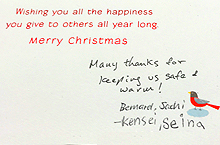 Wishing you all the happiness
you give to others all year long.
Merry Christmas
Many thanks for
keeping us safe &
warm!
Bernard, Sachi
-Kensei, Seina